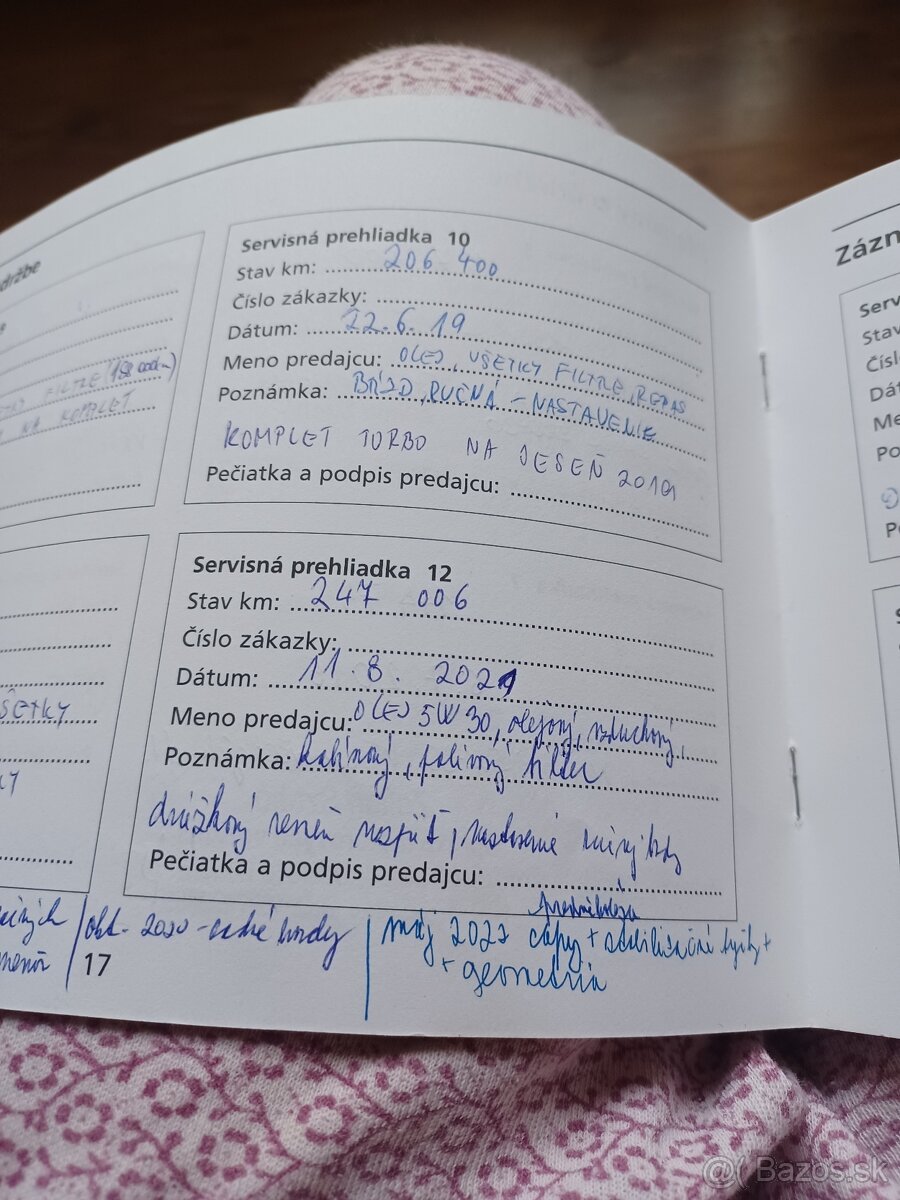 držbe
FILTRE
NA KOMPLET
Servisná prehliadka 10
Stav km: 206 400
Číslo zákazky:
Dátum: 22.6.19
Meno predajcu: OLEJ, VŠETKY FILTRE, REPAS
Poznámka: BŔZD, RUČNÁ - NASTAVENIE
KOMPLET TURBO NA JESEŇ 2019
Pečiatka a podpis predajcu:
ŠETKY
Servisná prehliadka 12
Stav km: 247 006
Číslo zákazky:
Dátum: 11.8.2021
Meno predajcu: OLEJ 5W30, olejový, vzduchový,
Poznámka: kabínový, palivový filter
drážkový remeň
Pečiatka a podpis predajcu:
okt. 2020 - zadné brzdy
17
máj 2022 čapy + stabilizačné tyčky +
+ geometria
Zázn
Serv
Stav
Čísl
Dát
Me
Po
Pe
@( Bazos.sk